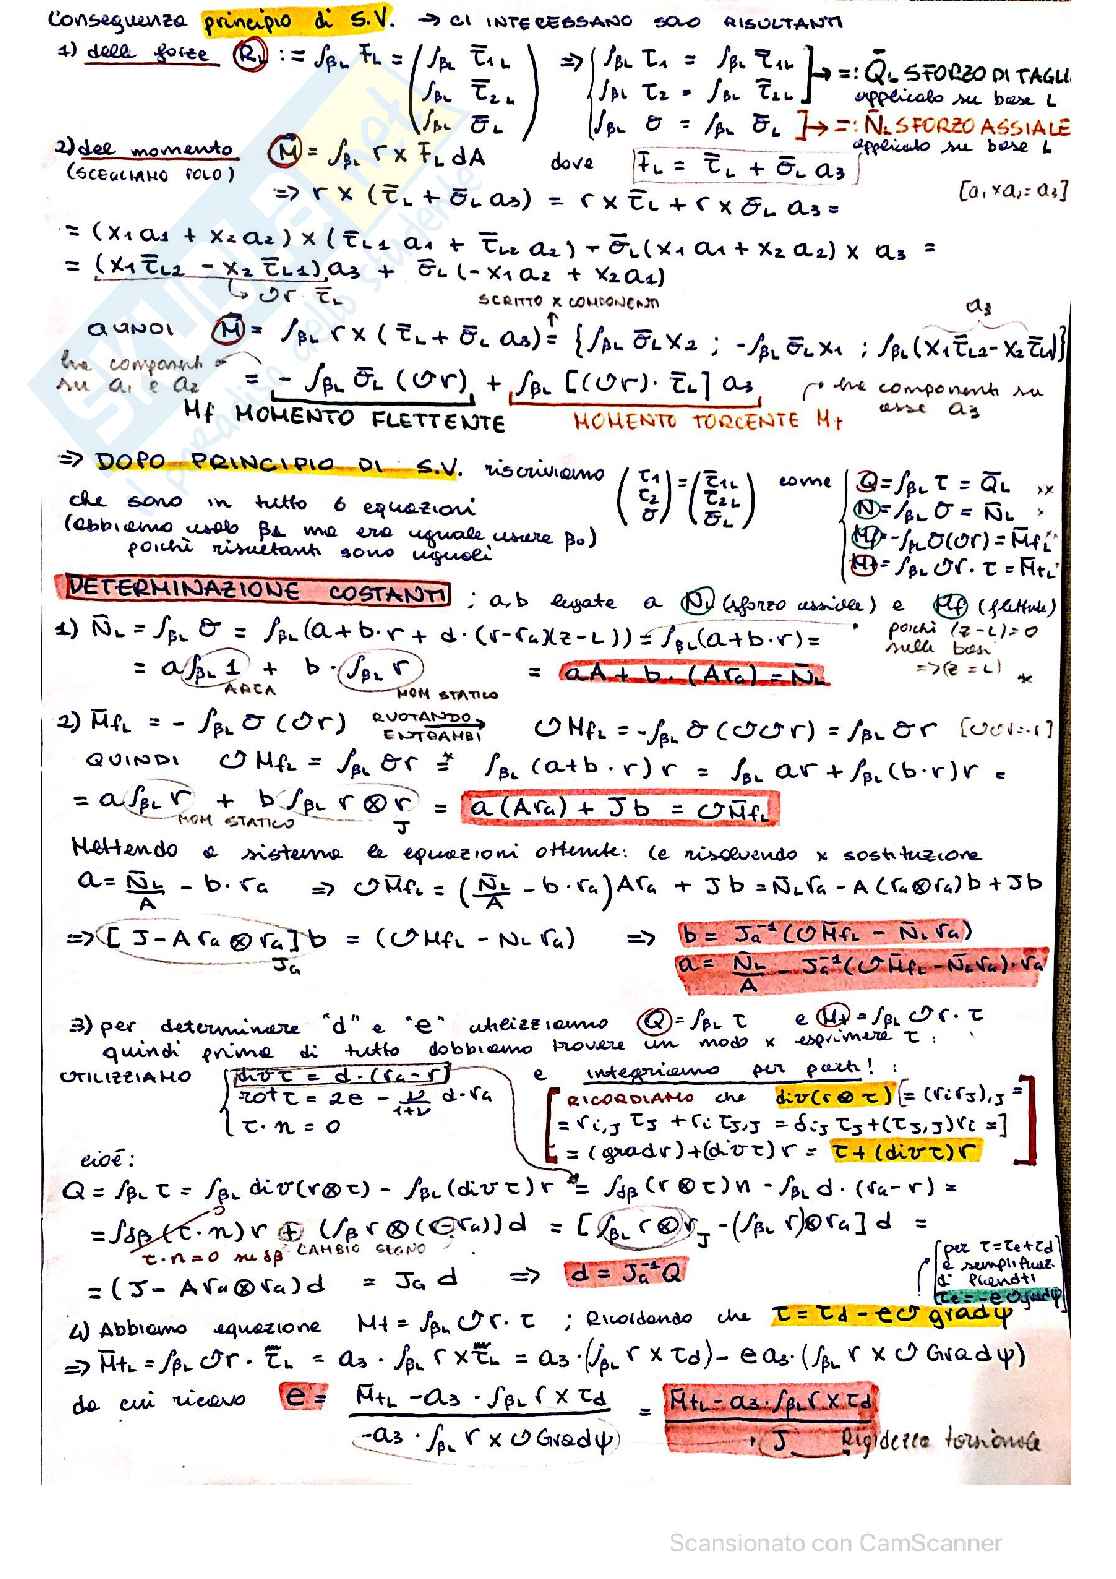 Conseguenza principio di S.V. → CI INTERESSANO SOLO RISULTANTI
1) delle forze (R_L) := ∫βL F_L = (∫βL τ̄_1L ∫βL τ̄_2L ∫βL σ̄_L) ⇒ {∫βL τ1 = ∫βL τ̄_1L
∫βL τ2 = ∫βL τ̄_2L ] → =: Q̄_L SFORZO DI TAGLI
applicato su base L
∫βL σ = ∫βL σ̄_L ] → =: N̄_L SFORZO ASSIALE
applicato su base L
2) del momento (M̄) = ∫βL r × F̄_L dA dove F̄_L = τ̄_L + σ̄_L a3
(SCEGLIAMO POLO)
⇒ r × (τ̄_L + σ̄_L a3) = r × τ̄_L + r × σ̄_L a3 = [a1 × a1 = a3]
= (x1 a1 + x2 a2) × (τ̄_L1 a1 + τ̄_L2 a2) + σ̄_L (x1 a1 + x2 a2) × a3 =
= (x1 τ̄_L2 - x2 τ̄_L1) a3 + σ̄_L (-x1 a2 + x2 a1)
↳ ↺r · τ̄_L
SCRITTO X COMPONENTI
a3
QUINDI (M̄) = ∫βL r × (τ̄_L + σ̄_L a3) = {∫βL σ̄_L x2 ; -∫βL σ̄_L x1 ; ∫βL (x1 τ̄_L2 - x2 τ̄_L1)}
ha componenti su a1 e a2
= - ∫βL σ̄_L (↺r) + ∫βL [(↺r) · τ̄_L] a3 ha componenti su asse a3
Mf MOMENTO FLETTENTE MOMENTO TORCENTE Mt
⇒ DOPO PRINCIPIO DI S.V. riscriviamo (τ1 τ2 σ) = (τ̄_1L τ̄_2L σ̄_L) come {Q = ∫βL τ = Q̄_L
che sono in tutto 6 equazioni N = ∫βL σ = N̄_L
(abbiamo usato βL ma era uguale usare β0) Mf = -∫βL σ(↺r) = M̄fL
poichè risultanti sono uguali Mt = ∫βL ↺r · τ = M̄tL
DETERMINAZIONE COSTANTI ; a, b legate a N̄_L (sforzo assiale) e Mf (flettente)
1) N̄_L = ∫βL σ = ∫βL (a + b · r + d · (r - r_G)(z - L)) = ∫βL (a + b · r) =
poichè (z - L) = 0
sulle basi
⇒ (z = L)
= a ∫βL 1 + b · ∫βL r = aA + b · (A r_G) = N̄_L
AREA MOM STATICO
2) M̄fL = - ∫βL σ (↺r) RUOTANDO ENTRAMBI → ↺MfL = - ∫βL σ (↺↺r) = ∫βL σ r [↺↺ = -1]
QUINDI ↺MfL = ∫βL σ r = ∫βL (a + b · r) r = ∫βL a r + ∫βL (b · r) r =
= a ∫βL r + b ∫βL r ⊗ r = a (A r_G) + J b = ↺M̄fL
MOM STATICO J
Mettendo a sistema le equazioni ottenute: (e risolvendo x sostituzione
a = N̄_L/A - b · r_G ⇒ ↺M̄fL = (N̄_L/A - b · r_G) A r_G + J b = N̄_L r_G - A (r_G ⊗ r_G) b + J b
⇒ [J - A r_G ⊗ r_G] b = (↺MfL - N_L r_G) ⇒ b = J_G⁻¹ (↺M̄fL - N̄_L r_G)
J_G
a = N̄_L/A - J_G⁻¹ (↺M̄fL - N̄_L r_G) · r_G
3) per determinare "d" e "e" utilizziamo (Q) = ∫βL τ e (Mt) = ∫βL ↺r · τ
quindi prima di tutto dobbiamo trovare un modo x esprimere τ :
UTILIZZIAMO {div τ = d · (r_G - r) e integriamo per parti! :
rot τ = 2e - 2ν/1+ν d · r_G
τ · n = 0
[RICORDIAMO che div(r ⊗ τ) [= (r_i τ_j),j =
= r_i,j τ_j + r_i τ_j,j = δ_ij τ_j + (τ_j,j) r_i =]
= (grad r) + (div τ) r = τ + (div τ) r]
cioè:
Q = ∫βL τ = ∫βL div(r ⊗ τ) - ∫βL (div τ) r = ∫∂β (r ⊗ τ) n - ∫βL d · (r_G - r) =
= ∫∂β (τ · n) r ⊕ (∫β r ⊗ (r - r_G)) d = [∫βL r ⊗ r - (∫βL r) ⊗ r_G] d =
τ · n = 0 su ∂β CAMBIO SEGNO J
= (J - A r_G ⊗ r_G) d = J_G d ⇒ d = J_G⁻¹ Q
[per τ = τe + τd
e semplificaz.
di
τe = -e ↺ grad ψ]
4) Abbiamo equazione Mt = ∫βL ↺r · τ ; Ricordando che τ = τd - e ↺ grad ψ
⇒ M̄tL = ∫βL ↺r · τ̄_L = a3 · ∫βL r × τ̄_L = a3 · (∫βL r × τd) - e a3 · (∫βL r × ↺ Grad ψ)
da cui ricavo e = M̄tL - a3 · ∫βL r × τd / -a3 · ∫βL r × ↺ Grad ψ = M̄tL - a3 · ∫βL r × τd / J Rigidezza torsionale
Scansionato con CamScanner